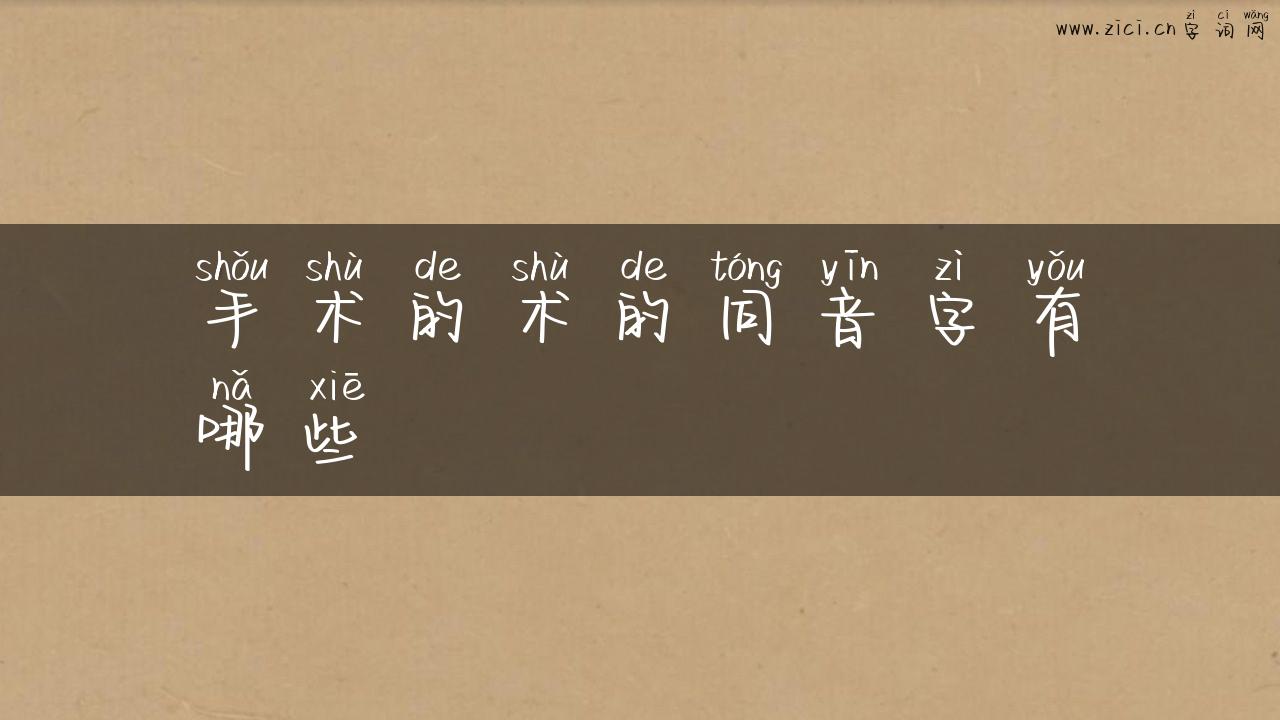 zì cí wǎng
www.zici.cn 字词网
shǒu shù de shù de tóng yīn zì yǒu
手术的术的同音字有
nǎ xiē
哪些